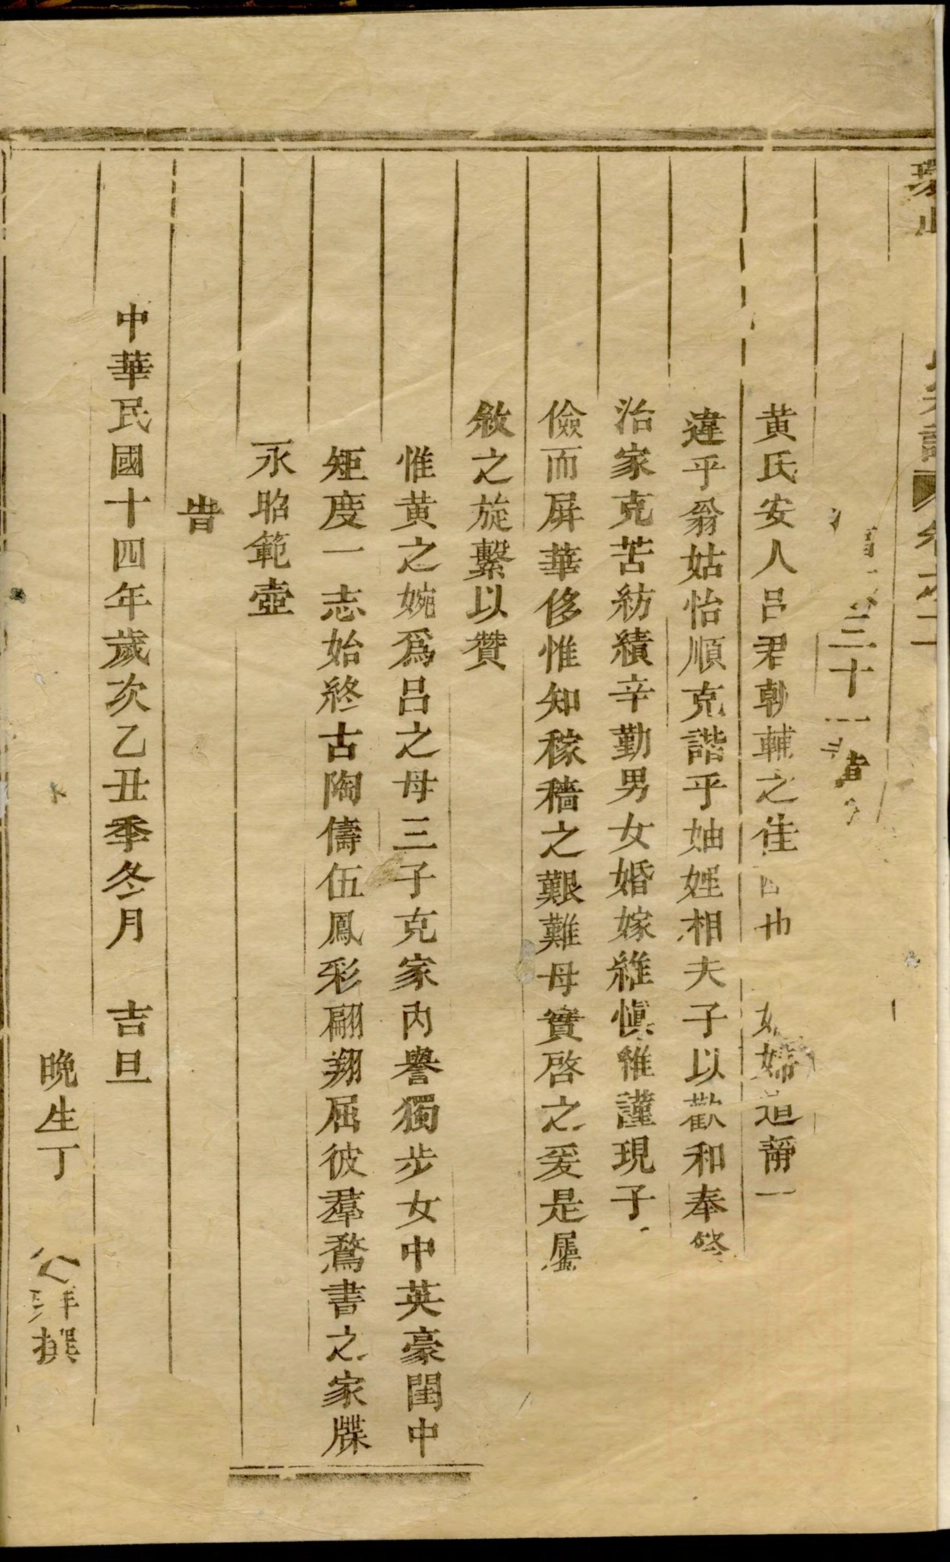 卷之二
三十一
黃氏安人呂君朝輔之佳也婦道靜一
違乎翁姑怡順克諧乎妯娌相夫子以歡和奉祭
治家克苦紡績辛勤男女婚嫁維慎惟謹現子
儉而屏華侈惟知稼穡之艱難母實啓之爰是屬
敘之旋繫以贊
惟黃之婉爲呂之母三子克家內譽獨步女中英豪閨中
矩度一志始終古陶儔伍鳳彩翩翔屈彼羣鶩書之家牒
永昭範壼
旹
中華民國十四年歲次乙丑季冬月　吉旦
晚生丁撰